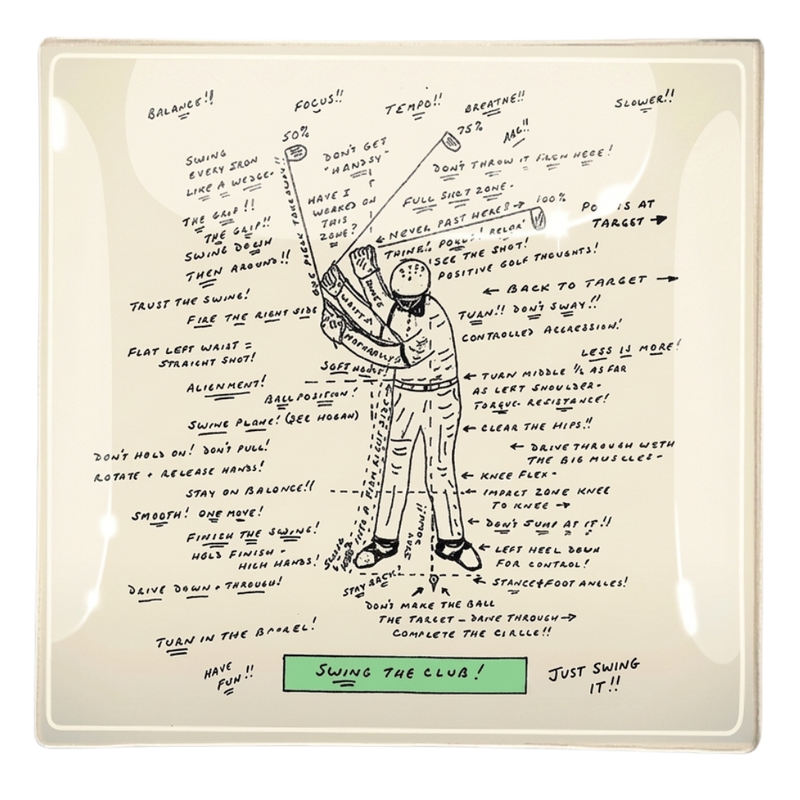 BALANCE!!
FOCUS!!
TEMPO!!
BREATHE!!
SLOWER!!
50%
75%
AAG!!
SWING
EVERY IRON
LIKE A WEDGE-
DON'T GET
"HANDSY"
DON'T THROW IT FROM HERE!
ONE PIECE TAKEAWAY!!
HAVE I
WORKED ON
THIS
ZONE?
FULL SHOT ZONE-
100%
THE GRIP!!
THE GRIP!!
← NEVER PAST HERE? →
IS AT
TARGET →
SWING DOWN
THEN AROUND!!
THINK! RELAX!
SEE THE SHOT!
POSITIVE GOLF THOUGHTS!
TRUST THE SWING!
← BACK TO TARGET →
FIRE THE RIGHT SIDE
WRISTS
HINGE
NATURALLY
TURN!! DON'T SWAY!!
CONTROLLED AGGRESSION!
FLAT LEFT WRIST =
STRAIGHT SHOT!
LESS IS MORE!
SOFT HANDS!
← TURN MIDDLE ½ AS FAR
AS LEFT SHOULDER-
TORQUE- RESISTANCE!
ALIGNMENT!
BALL POSITION!
SWING PLANE! (SEE HOGAN)
← CLEAR THE HIPS!!
DON'T HOLD ON! DON'T PULL!
ROTATE + RELEASE HANDS!
← DRIVE THROUGH WITH
THE BIG MUSCLES-
← KNEE FLEX-
STAY ON BALANCE!!
← IMPACT ZONE KNEE
TO KNEE →
SMOOTH! ONE MOVE!
INTO A FIRM RIGHT SIDE
STAY
DOWN!!
← DON'T JUMP AT IT!!
FINISH THE SWING!
HOLD FINISH-
HIGH HANDS!
← LEFT HEEL DOWN
FOR CONTROL!
DRIVE DOWN + THROUGH!
STAY BACK!
← STANCE + FOOT ANGLES!
DON'T MAKE THE BALL
THE TARGET - DRIVE THROUGH →
COMPLETE THE CIRCLE!!
TURN IN THE BARREL!
HAVE
FUN!!
SWING THE CLUB!
JUST SWING
IT!!